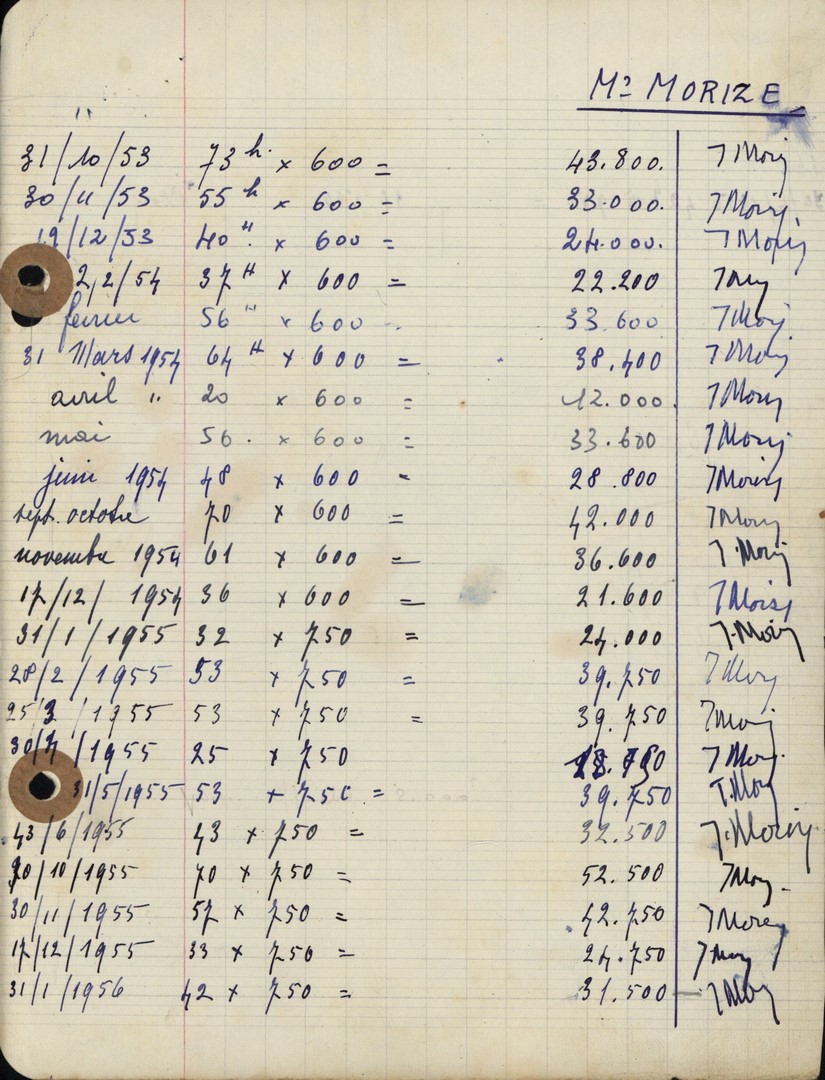 Mr MORIZE
"
31/10/53 73 h. x 600 = 43.800. T Moriz
30/11/53 55 h x 600 = 33.000. T Moriz
19/12/53 40 " x 600 = 24.000. T Moriz
2,2/54 37 H x 600 = 22.200
février 56 " x 600 = 33.600 T Moriz
31 Mars 1954 64 H x 600 = 38.400 T Moriz
avril " 20 x 600 = 12.000. T Moriz
mai 56. x 600 = 33.600 T Moriz
juin 1954 48 x 600 = 28.800 T Moriz
sept. octobre 70 x 600 = 42.000 T Moriz
novembre 1954 61 x 600 = 36.600 T. Moriz
17/12/ 1954 36 x 600 = 21.600 T Moriz
31/1/1955 32 x 750 = 24.000 T. Moriz
28/2/1955 53 x 750 = 39.750 T Moriz
25/3/1955 53 x 750 = 39.750 T Moriz
30/4/1955 25 x 750 18.750 T Moriz
31/5/1955 53 x 750 = 39.750 T. Moriz
/6/1955 43 x 750 = 32.500 T. Moriz
/10/1955 70 x 750 = 52.500
30/11/1955 57 x 750 = 42.750 T Moriz
17/12/1955 33 x 750 = 24.750
31/1/1956 42 x 750 = 31.500 T Moriz